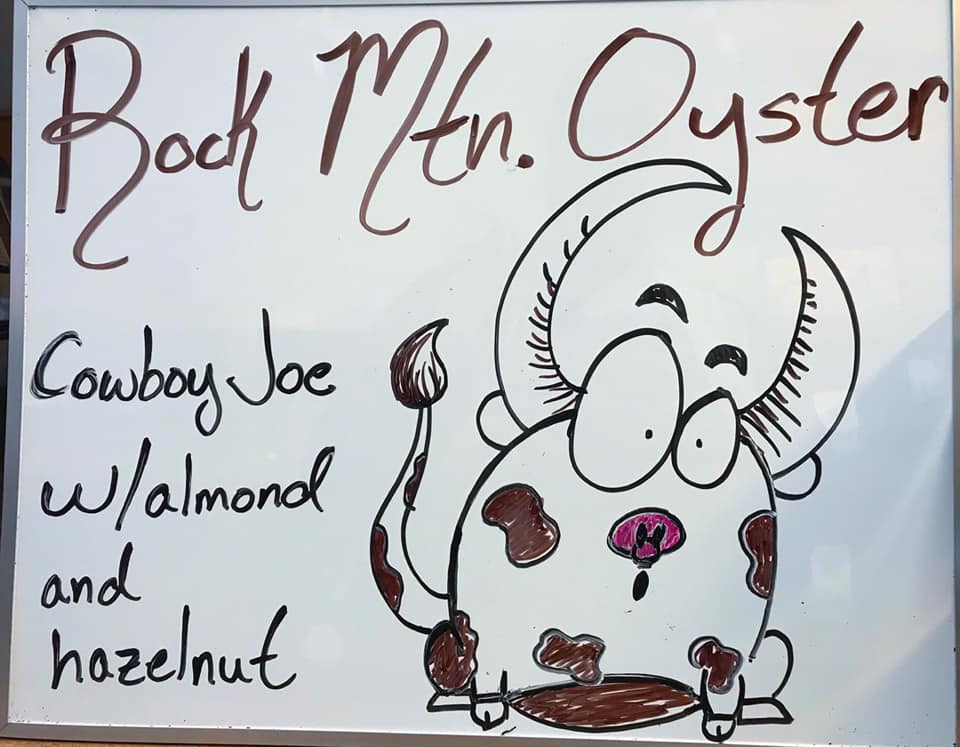 Rock Mtn. Oyster
Cowboy Joe
w/almond
and
hazelnut